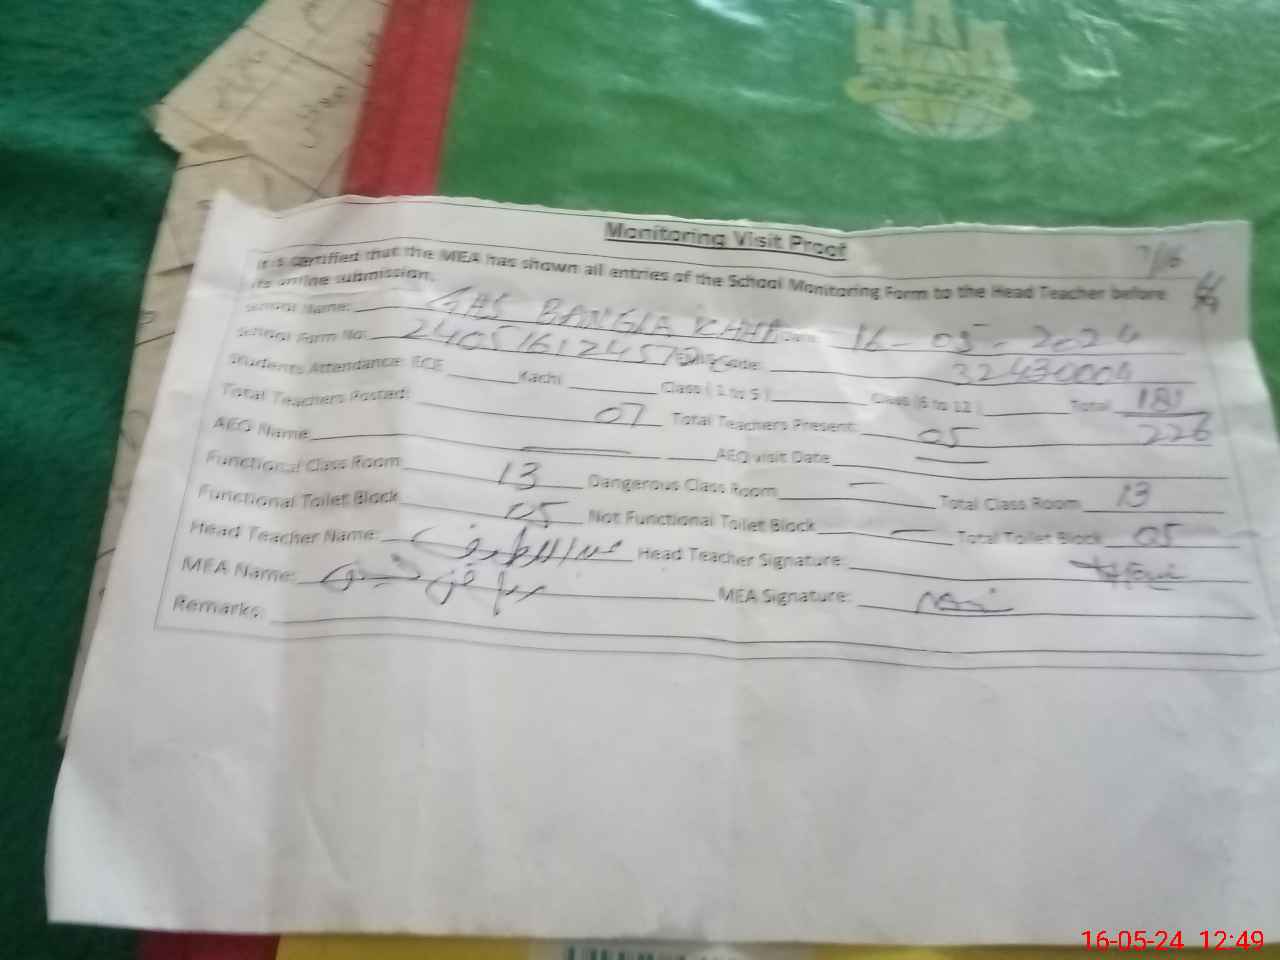 Monitoring Visit Proof
It is certified that the MEA has shown all entries of the School Monitoring Form to the Head Teacher before
its online submission.
School Name: GHS BANGLA Date: 16-05-2024
School Form No: Code: 32430004
Students Attendance: ECE Kachi Class (1 to 5) Class (6 to 12) Total 181
226
Total Teachers Posted: 07 Total Teachers Present: 05
AEO Name AEO visit Date
Functional Class Room 13 Dangerous Class Room — Total Class Room 13
Functional Toilet Block 05 Not Functional Toilet Block — Total Toilet Block 05
Head Teacher Name: عبداللطیف Head Teacher Signature:
MEA Name: MEA Signature:
Remarks:
16-05-24 12:49